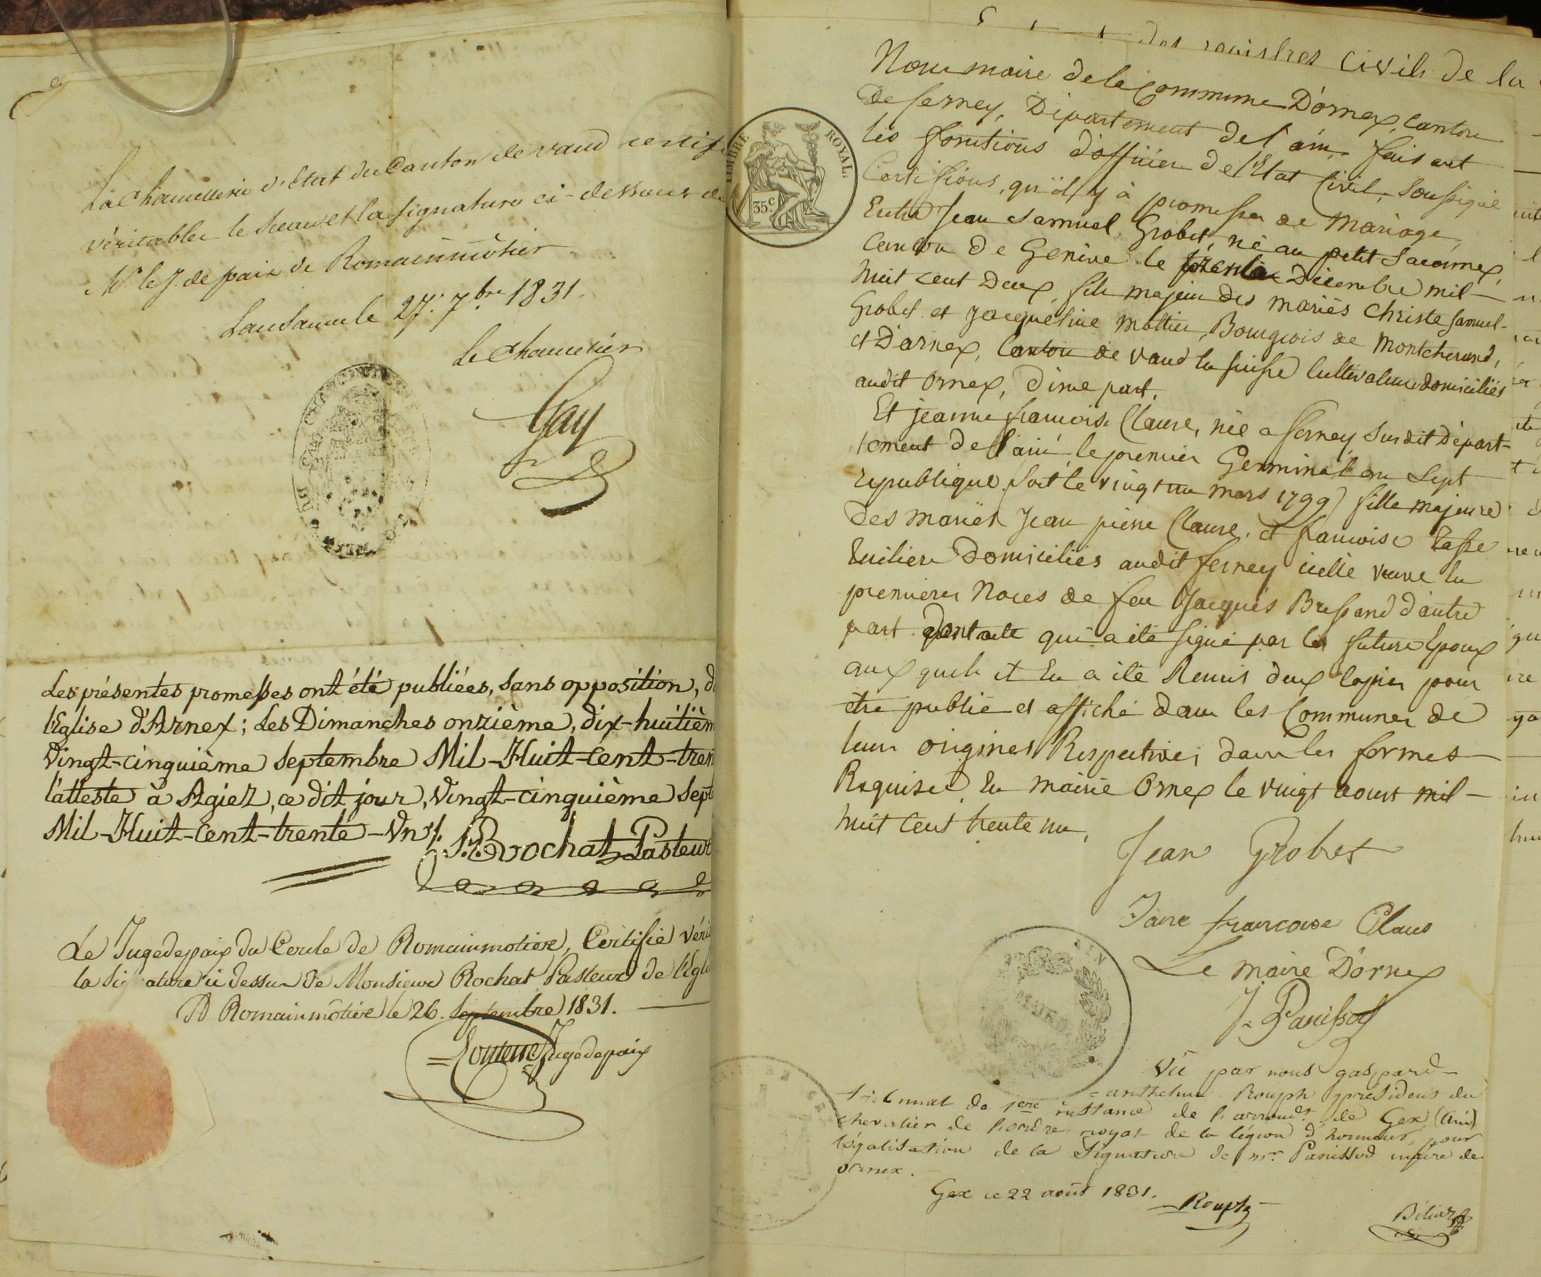 La Chancellerie d'Etat du Canton de Vaud certif
véritables le Sceau et la signature ci-dessus de
Mr le J. de paix de Romainmôtier
Lausanne le 27. 7bre 1831.
Le Chancelier
Gay
Les présentes promesses ont été publiées, sans opposition, d
l'Eglise d'Arnex; Les Dimanches onzième, dix-huitièm
Vingt-cinquième Septembre Mil-Huit-cent-tren
l'atteste à Agiez, ce dit jour, Vingt-cinquième Sept
Mil-Huit-cent-trente-Un.
Rochat Pasteur
Le Juge de paix du Cercle de Romainmotier, Certifie véri
la Signature ci dessus de Monsieur Rochat Pasteur de l'Egl
Romainmôtier le 26. Septembre 1831.
Juge de paix
des registres civils de la
TIMBRE ROYAL.
35c
Nous maire de la Commune D'ornex, canton
de ferney, Département de l'ain, faisant
les fonctions d'officier de l'Etat Civil, Soussigné
Certifions, qu'il y à promesse de Mariage,
Entre Jean Samuel Grobet, né au petit Saconnex,
canton de Genève le trente Décembre mil
huit cent Deux, fils majeur des mariés Christe Samuel
Grobet et Jacqueline Mottier, Bourgeois de Montcherand,
et D'arnex, Canton de Vaud en suisse Cultivateur domiciliés
audit Ornex, d'une part.
Et jeanne francoise Claure, née a ferney Susdit Départ-
tement de l'ain le premier Germinal an Sept
republique (soit le vingt un mars 1799) fille majeure
des mariés Jean pierre Claure, et francoise
Domiciliés audit ferney icelle veuve en
premieres Noces de feu Jacques Bressand d'autre
part. Dont acte qui a été signé par les futurs Epoux
aux quels il En a été Remis deux Copies pour
être publié et affiché dans les Communes de
leurs origines Respectives dans les formes
Requises. En mairie Ornex le vingt aoust mil
huit cent trente un.
Jean Grobet
Jane francoise Claus
Le maire D'ornex
J. Panissod
Vû par nous gaspard
anthelme Rouph président du
tribunal de 1ere instance de l'arrondt de Gex (Ain)
chevalier de l'ordre royal de la légion d'honneur, pour
légalisation de la signature de mr Panissod maire de
ornex.
Gex le 22 août 1831.
Rouph